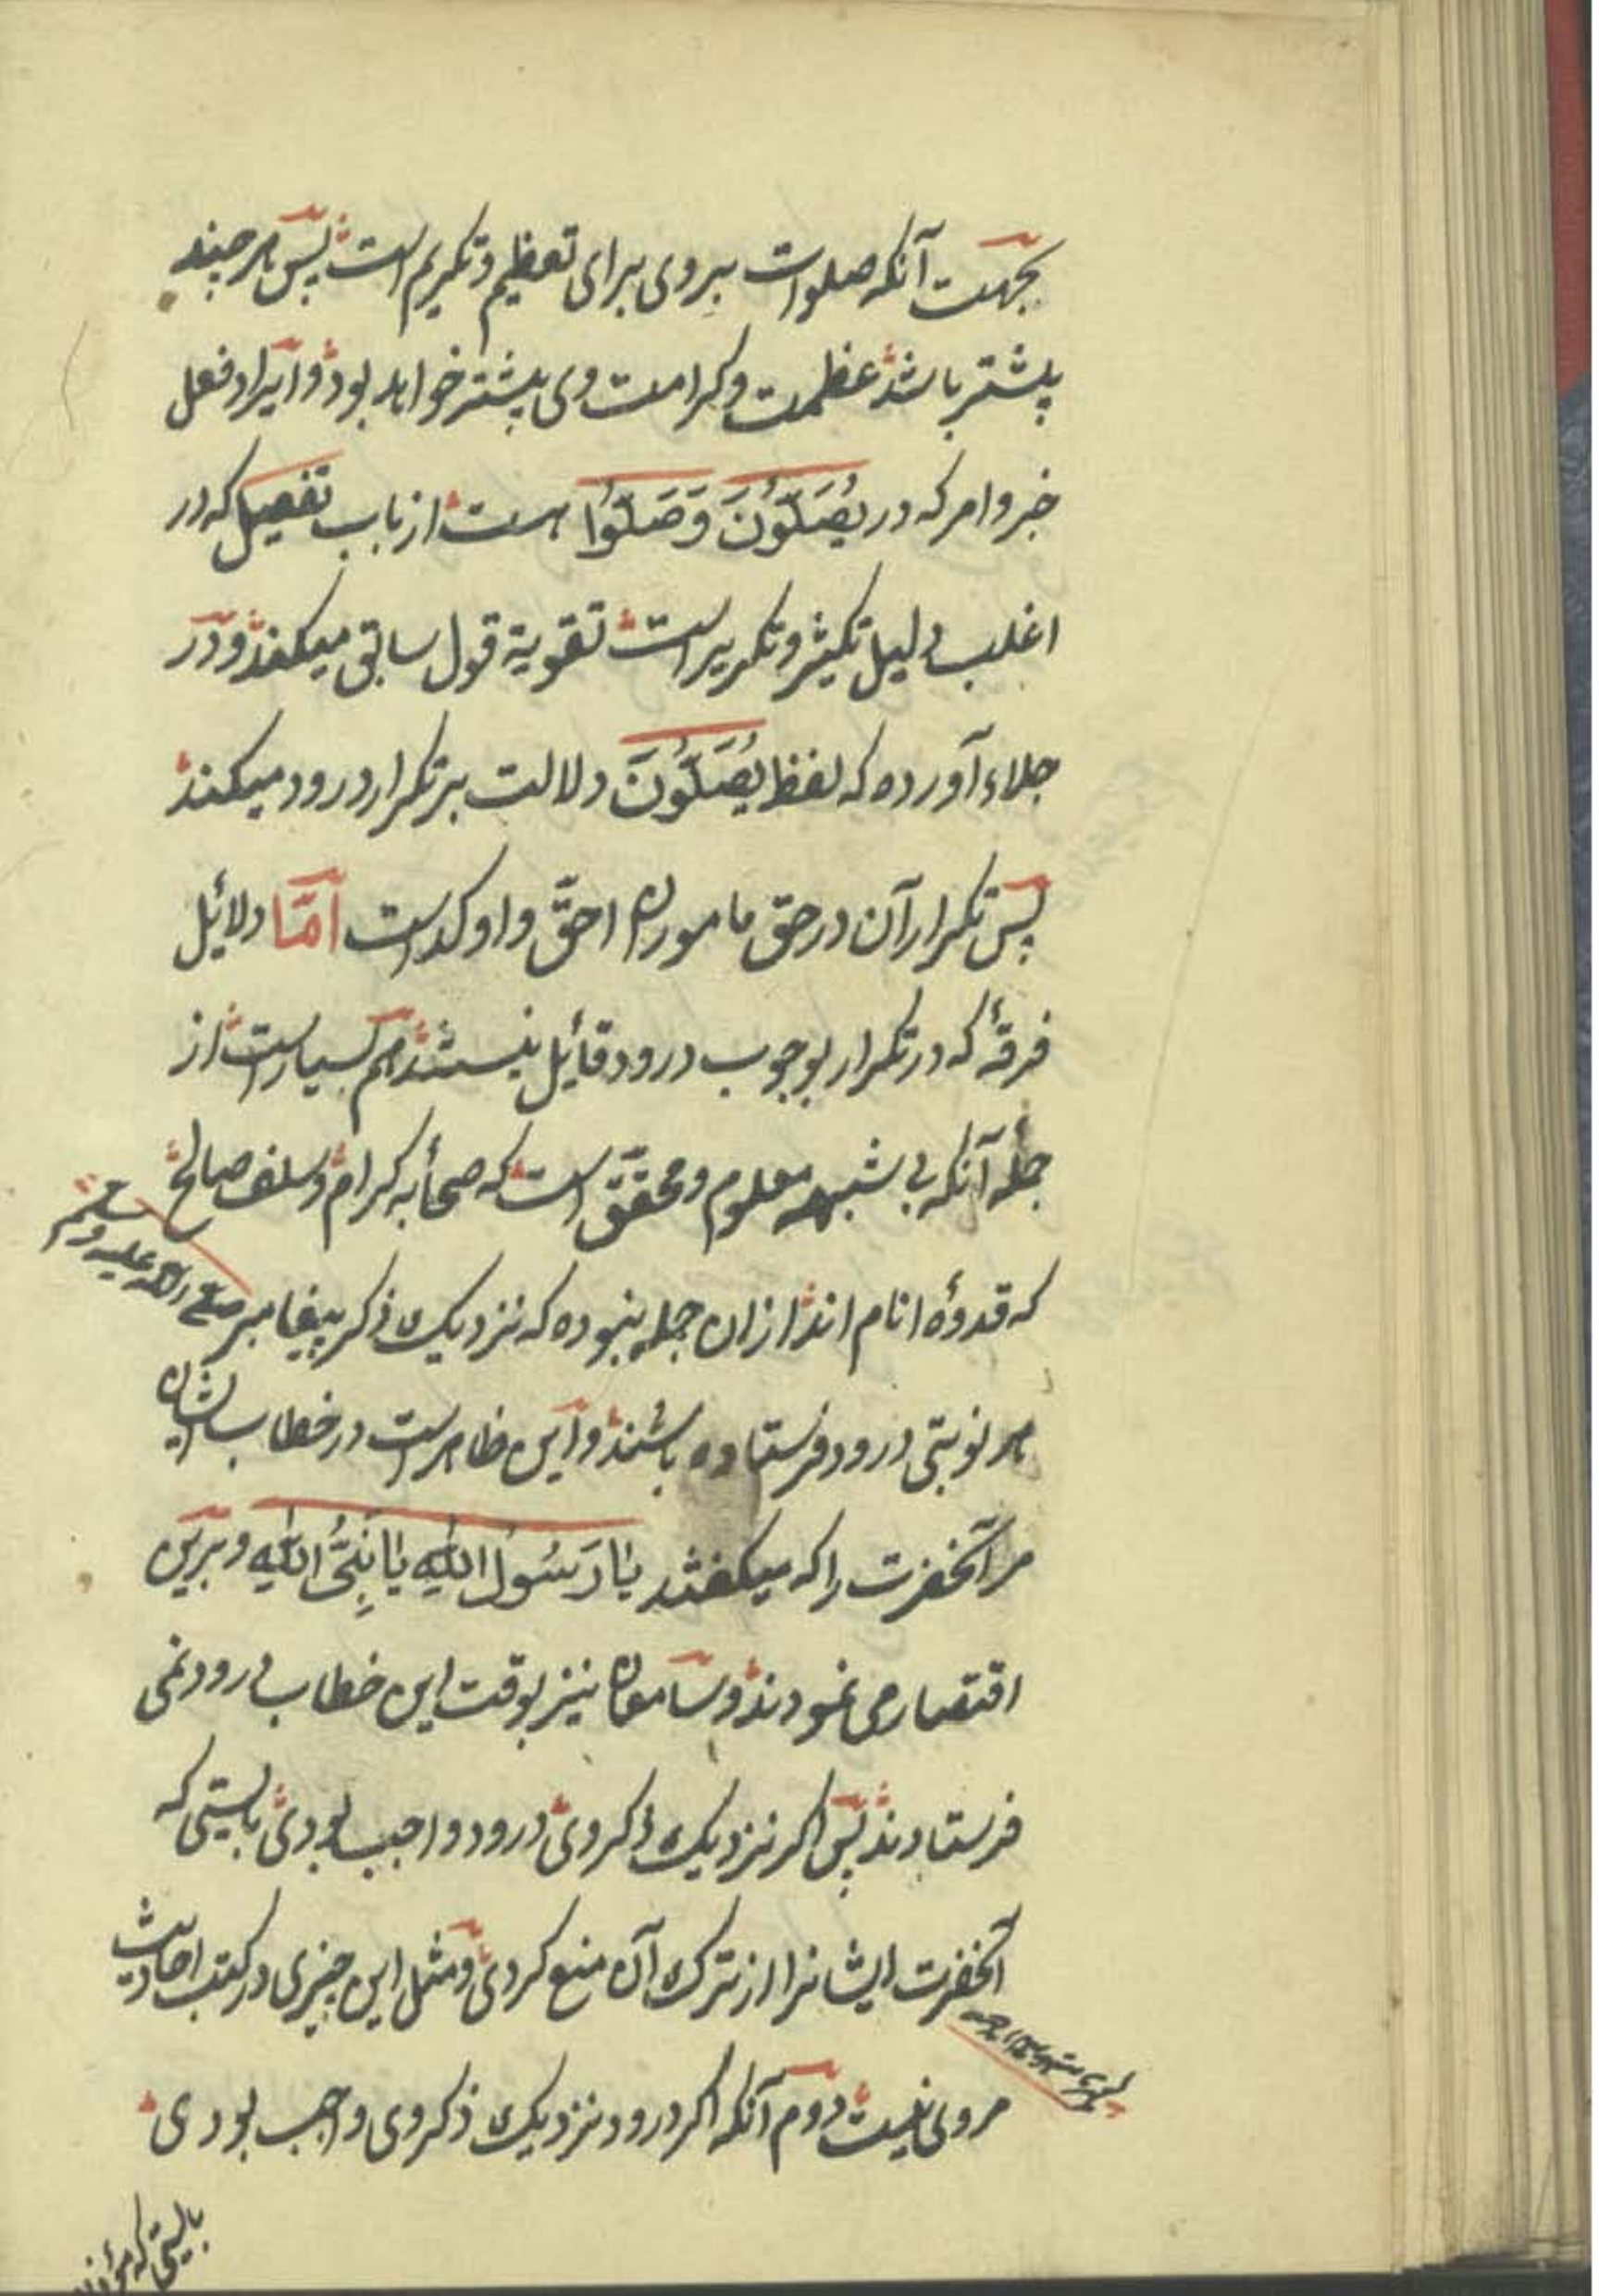 بجهت آنکه صلوات بروی برای تعظیم و تکریم است پس هر چند
پیشتر باشد عظمت و کرامت وی پیشتر خواهد بود و ایراد فعل
خبر و امر که در یُصَلُّونَ وَ صَلُّوا هست از باب تفعیل که در
اغلب دلیل تکثیر و تکریر است تقویة قول سابق میکند و در
جلاء آورده که لفظ یُصَلُّونَ دلالت بر تکرار درود میکند
پس تکرار آن در حق ماموران احقّ و اوکد است امّا دلائل
فرقهٔ که در تکرار بوجوب درود قائل نیستند هم بسیار است از
جمله آنکه بی شبهه معلوم و محقق است که صحابه کرام و سلف صالح
که قدوهٔ انام اند ازان جمله نبوده که نزدیک ذکر پیغامبر صلی الله علیه وسلم
هر نوبتی درود فرستاده باشند و این ظاهر است در خطاب ایشان
مر آنحضرت را که میگفتند یَا رَسُولَ اللهِ یَا نَبِیَّ اللهِ و برین
اقتصار می نمودند و سامعان نیز بوقت این خطاب درود نمی
فرستادند پس اگر نزدیک ذکر وی درود واجب بودی بایستی که
آنحضرت ایشانرا از ترک آن منع کردی و مثل این چیزی در کتب احادیث
مروی نیست دوم آنکه اگر درود نزدیک ذکر وی واجب بودی
بایستی که مؤذن